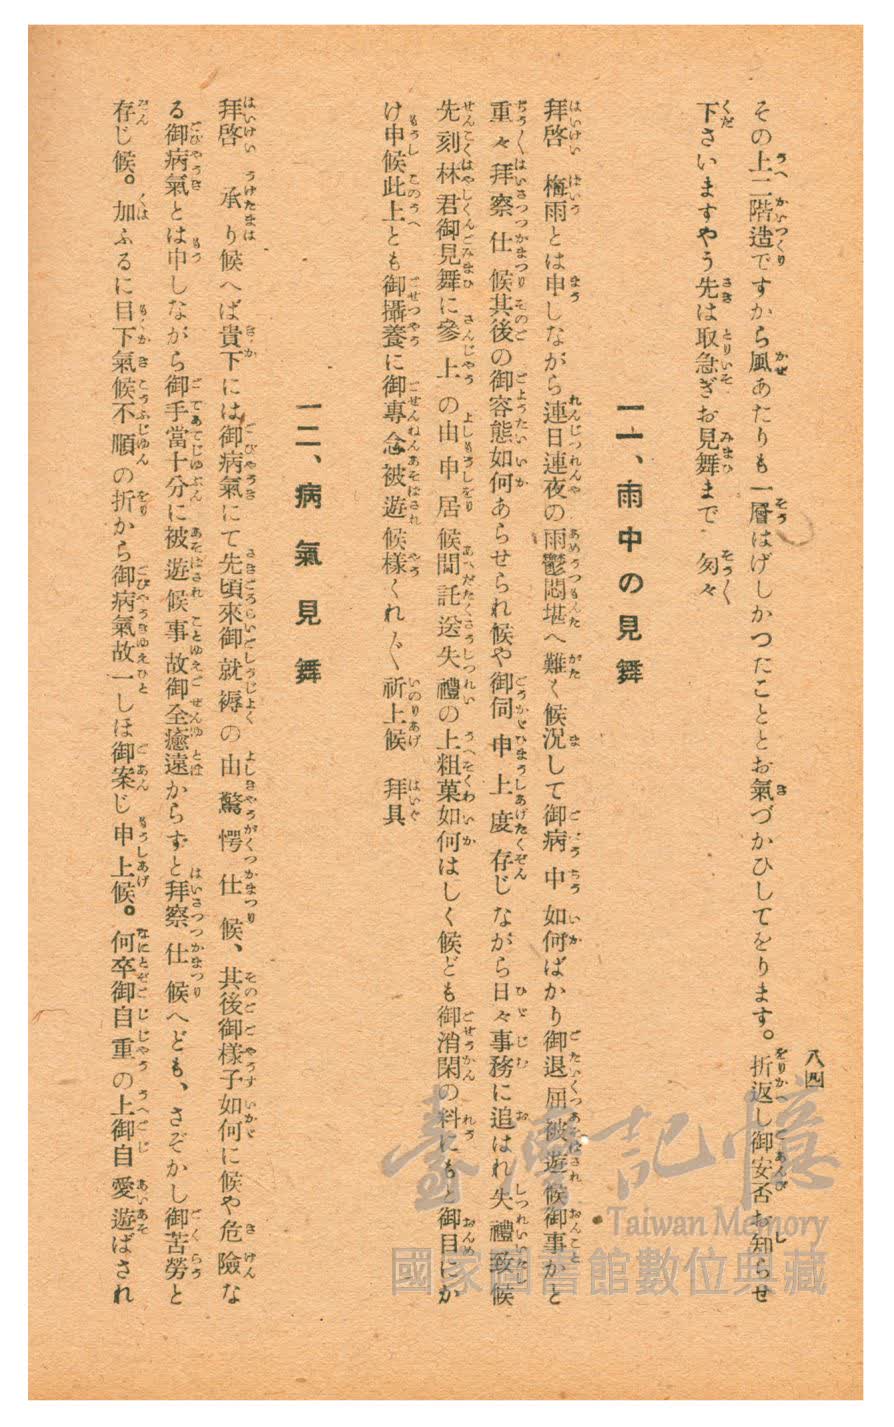 八四
その上二階造ですから風あたりも一層はげしかつたこととお氣づかひしてをります。折返し御安否お知らせ
下さいますやう先は取急ぎお見舞まで　匆々
一一、雨中の見舞
拜啓　梅雨とは申しながら連日連夜の雨鬱悶堪へ難く候況して御病中如何ばかり御退屈被遊候御事かと
重々拜察仕候其後の御容態如何あらせられ候や御伺申上度存じながら日々事務に追はれ失禮致候
先刻林君御見舞に參上の由申居候間託送失禮の上粗菓如何はしく候ども御消閑の料にもと御目にか
け申候此上とも御攝養に御專念被遊候樣くれ〲祈上候　拜具
一二、病氣見舞
拜啓　承り候へば貴下には御病氣にて先頃來御就褥の由驚愕仕候、其後御樣子如何に候や危險な
る御病氣とは申しながら御手當十分に被遊候事故御全癒遠からずと拜察仕候へども、さぞかし御苦勞と
存じ候。加ふるに目下氣候不順の折から御病氣故一しほ御案じ申上候。何卒御自重の上御自愛遊ばされ
臺灣記憶
Taiwan Memory
國家圖書館數位典藏